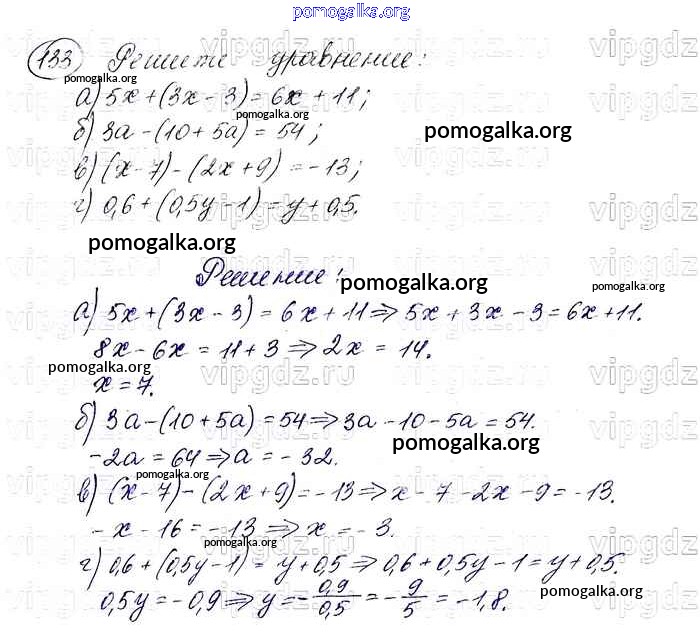 pomogalka.org
133 Решите уравнение:
pomogalka.org
а) 5x + (3x - 3) = 6x + 11;
б) 3a - (10 + 5a) = 54;
pomogalka.org
в) (x - 7) - (2x + 9) = -13;
г) 0,6 + (0,5y - 1) = y + 0,5.
pomogalka.org
Решение:
pomogalka.org
а) 5x + (3x - 3) = 6x + 11 ⇒ 5x + 3x - 3 = 6x + 11.
8x - 6x = 11 + 3 ⇒ 2x = 14.
pomogalka.org
x = 7.
б) 3a - (10 + 5a) = 54 ⇒ 3a - 10 - 5a = 54.
pomogalka.org
-2a = 64 ⇒ a = -32.
pomogalka.org
в) (x - 7) - (2x + 9) = -13 ⇒ x - 7 - 2x - 9 = -13.
-x - 16 = -13 ⇒ x = -3.
pomogalka.org
г) 0,6 + (0,5y - 1) = y + 0,5 ⇒ 0,6 + 0,5y - 1 = y + 0,5.
0,5y = -0,9 ⇒ y = -0,9/0,5 = -9/5 = -1,8.
pomogalka.org
vipgdz.ru